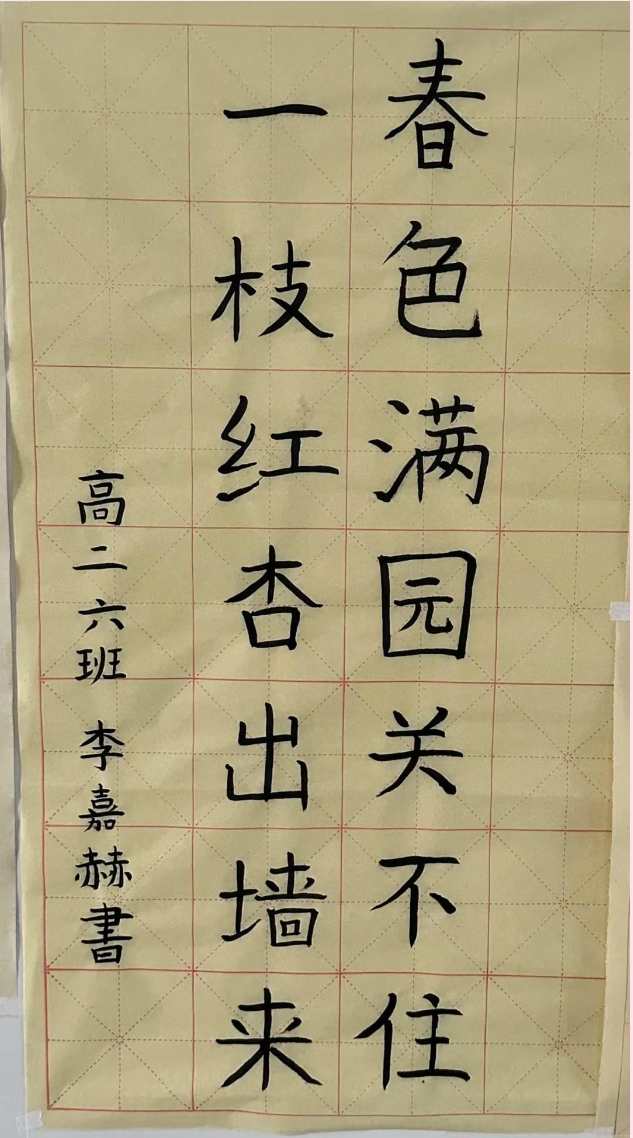 春色满园关不住
一枝红杏出墙来
高二六班 李嘉赫書